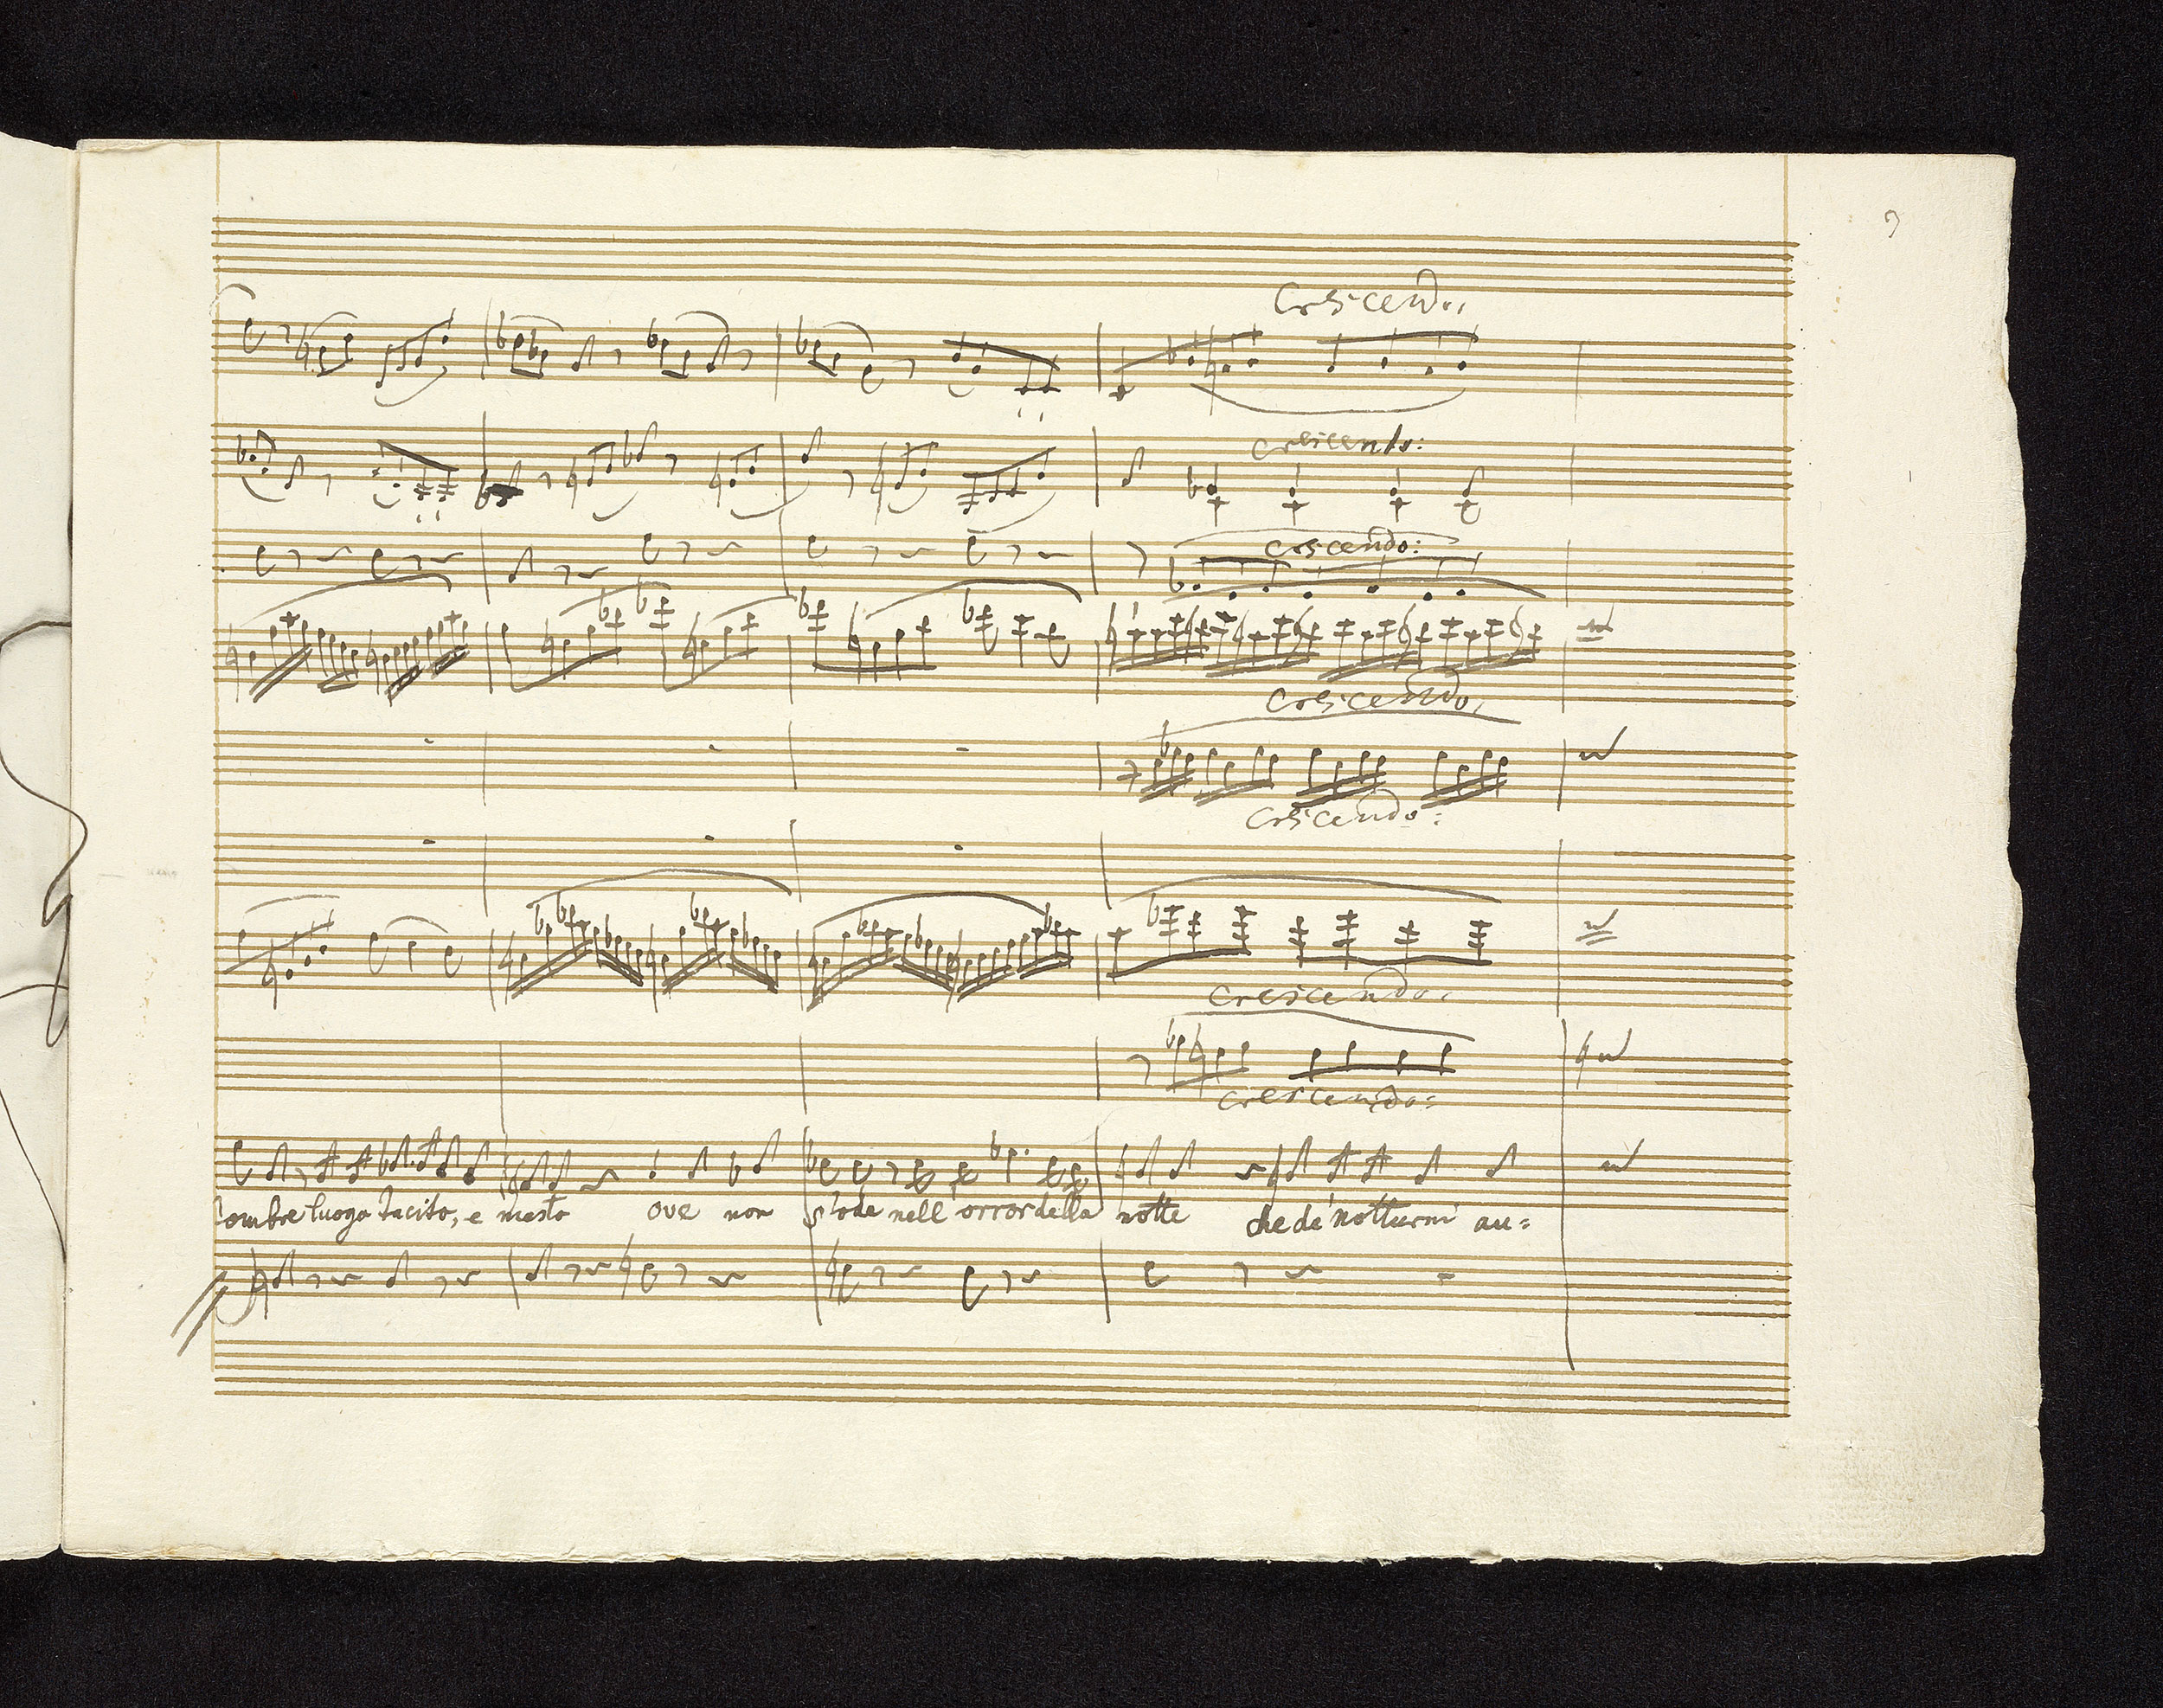 9
Crescendo:
Crescendo:
Crescendo:
Crescendo:
Crescendo:
Crescendo:
Crescendo:
l'ombre luogo tacito, e mesto ove non s'ode nell'orror della notte che de' notturni au=